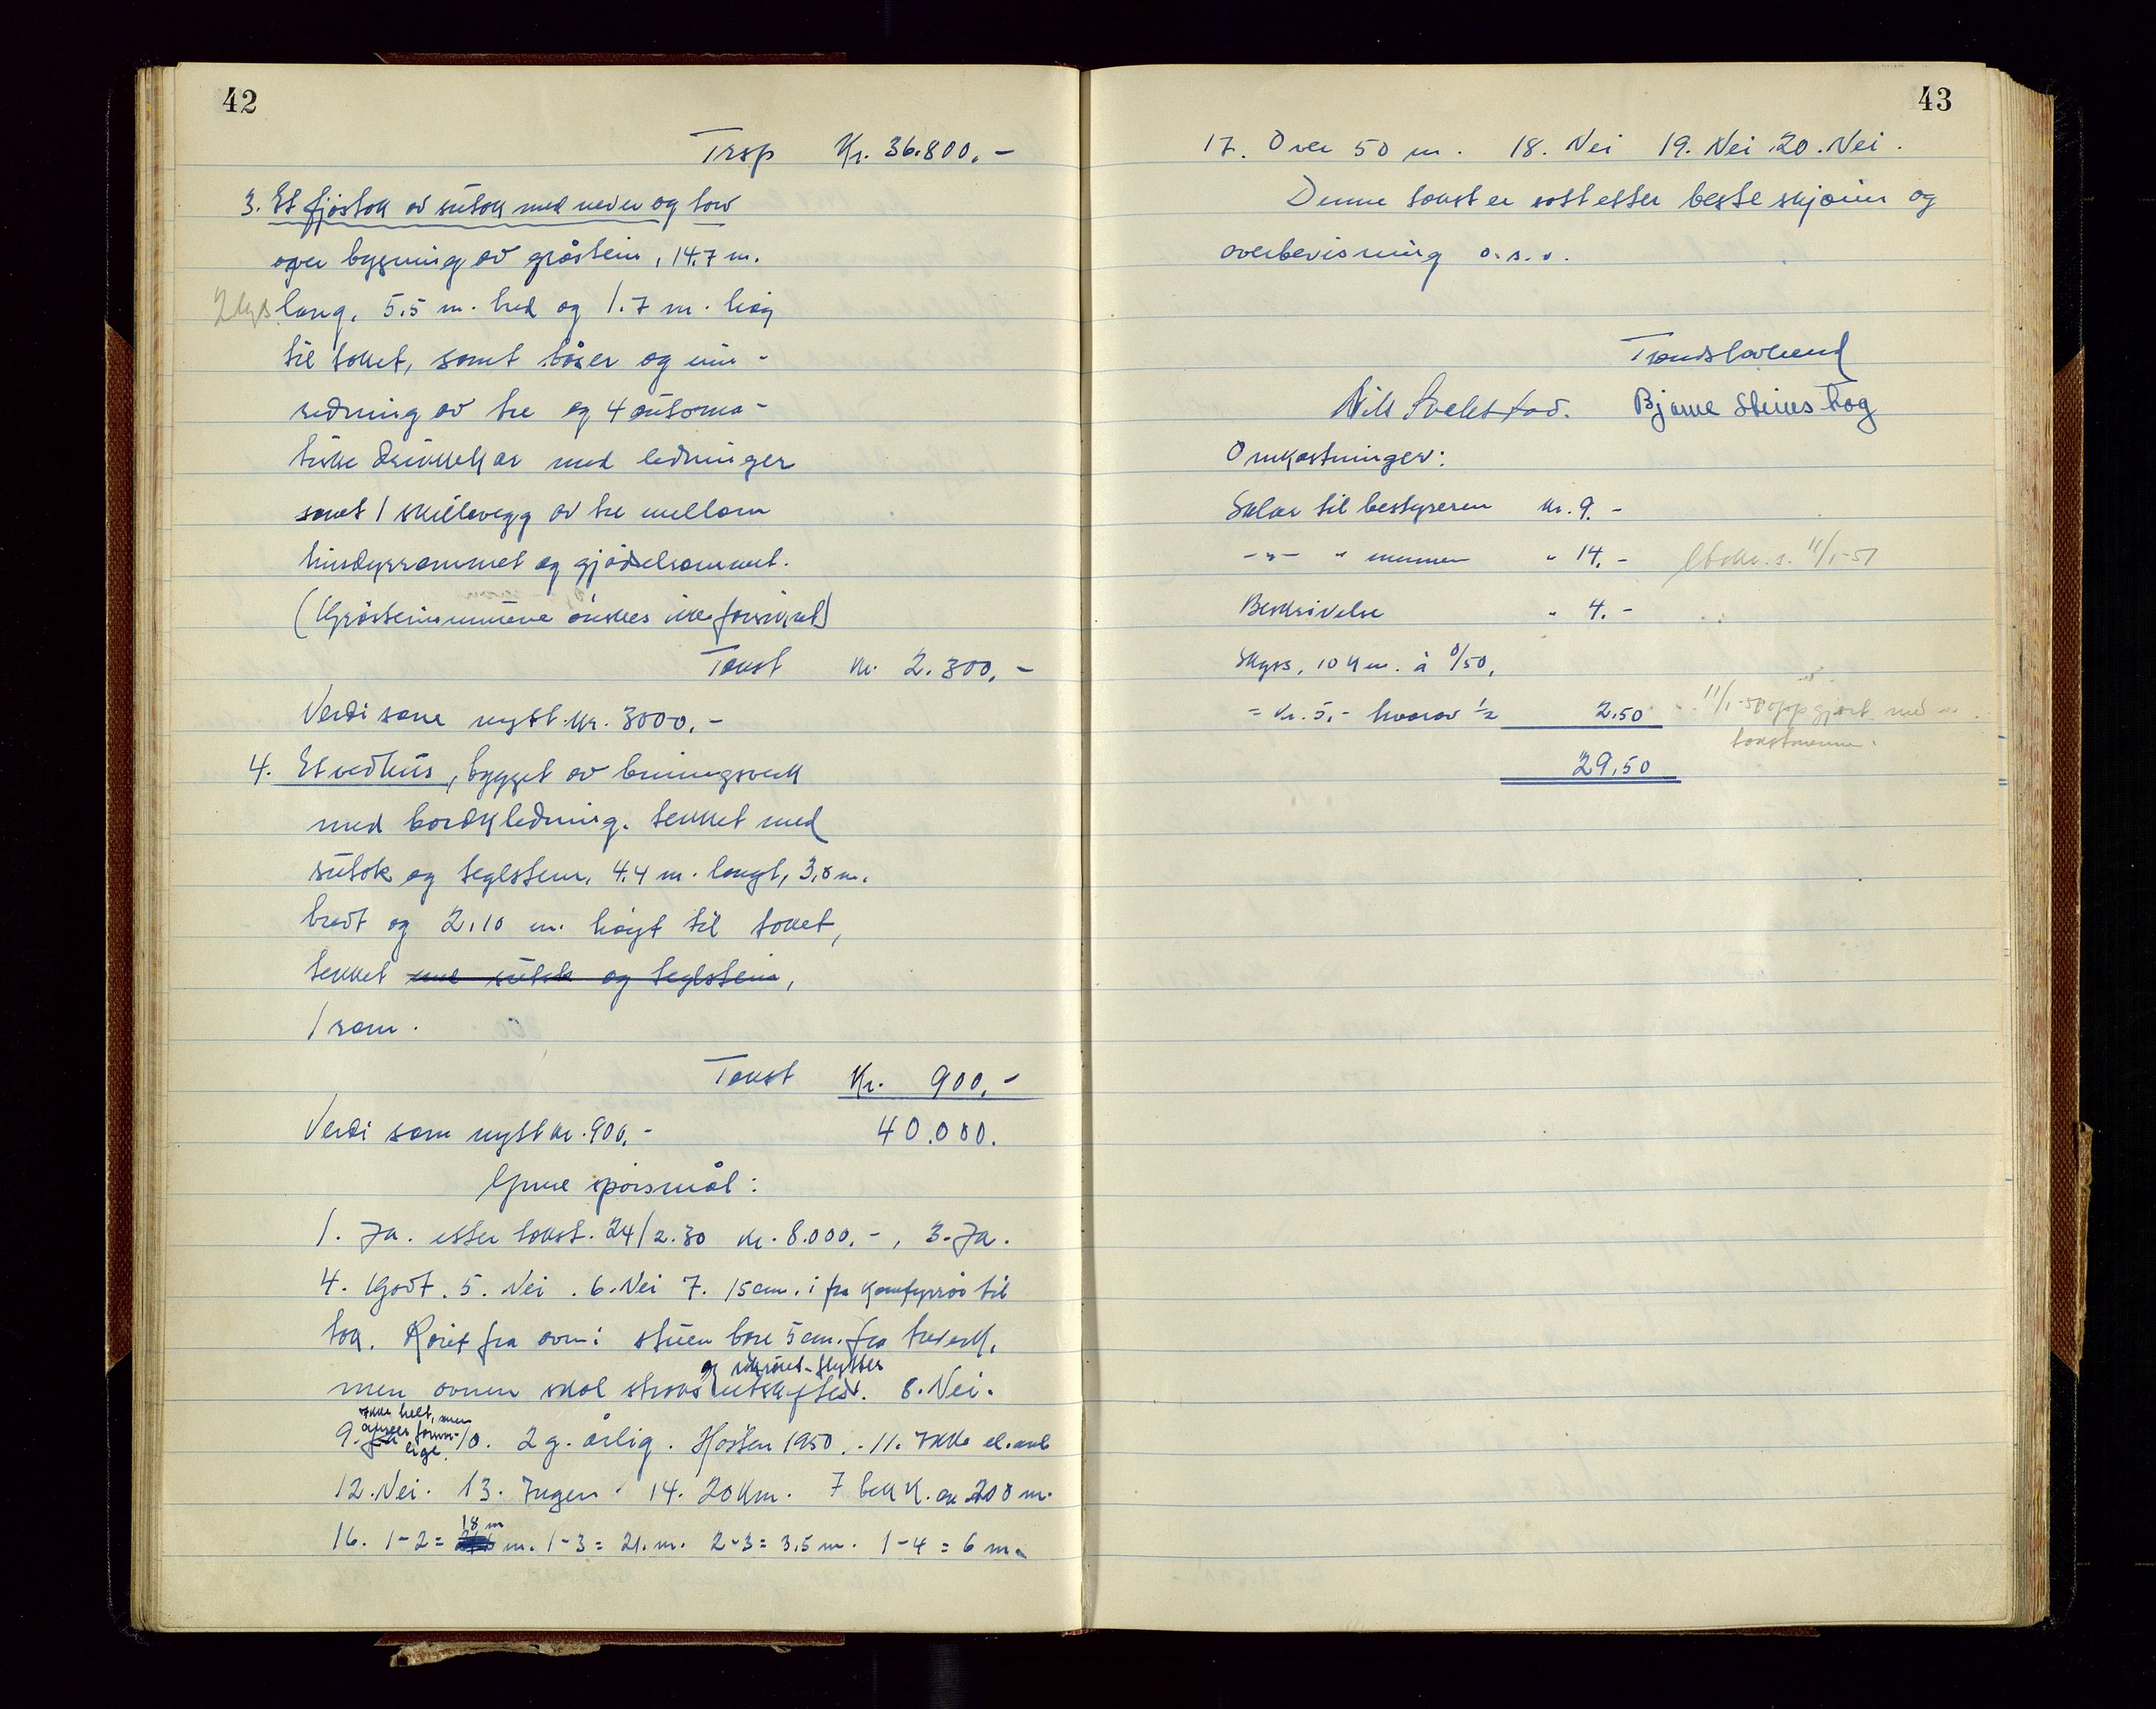 42
Trsp Kr. 36.800,-
3. Et fjøstak av sutak med never og torv
over bygning av gråstein, 14.7 m.
lang, 5.5 m. bred og 1.7 m. høg
til taket, samt båser og inn-
redning av tre og 4 automa-
tiske drikkekar med ledninger
samt 1 skillevegg av tre mellom
husdyrrommet og gjødselrommet.
(Gråsteinsmurene ønskes ikke forsikret)
Takst Kr. 2.300,-
Verdi som nytt Kr. 3000,-
4. Et vedhus, bygget av bindingsverk
med bordkledning. tekket med
sutak og teglstein, 4.4 m. langt, 3,8 m.
bredt og 2,10 m. høgt til taket,
tekket med sutak og teglstein,
1 rom.
Takst Kr. 900,-
Verdi som nytt kr. 900,- 40.000.
Grune spørsmål:
1. Ja. etter takst. 24/2.30 kr. 8.000,-, 3. Ja.
4. Godt. 5. Nei. 6. Nei 7. 15 cm. i fra komfyrrør til
tak. Røret fra ovn i stuen bare 5 cm. fra treverk,
og rökröret flyttes
men ovnen skal straks utskiftes. 8. Nei.
ikke helt, men
ansees forsvar-
lige.
9. Ja 10. 2 g. årlig. Høsten 1950. - 11. Ikke el. anl
12. Nei. 13. Ingen. 14. 20 km. 7 bekk. ca 200 m.
18 m
16. 1-2= m. 1-3= 21. m. 2-3= 3,5 m. 1-4= 6 m.
43
17. Over 50 m. 18. Nei 19. Nei 20. Nei.
Denne takst er satt etter beste skjønn og
overbevisning o.s.v.
Trondslavlund
Nils Svelstad. Bjarne Steinshag
Omkostninger:
Salær til bestyreren kr. 9.-
-"- " mennene " 14.- 11/1-51
Beskrivelse " 4.-
Skyss, 10 km. à 0/50,
= kr. 5,- hvorav 1/2 2,50 11/1-50 oppgjort med
takstmennene.
29,50